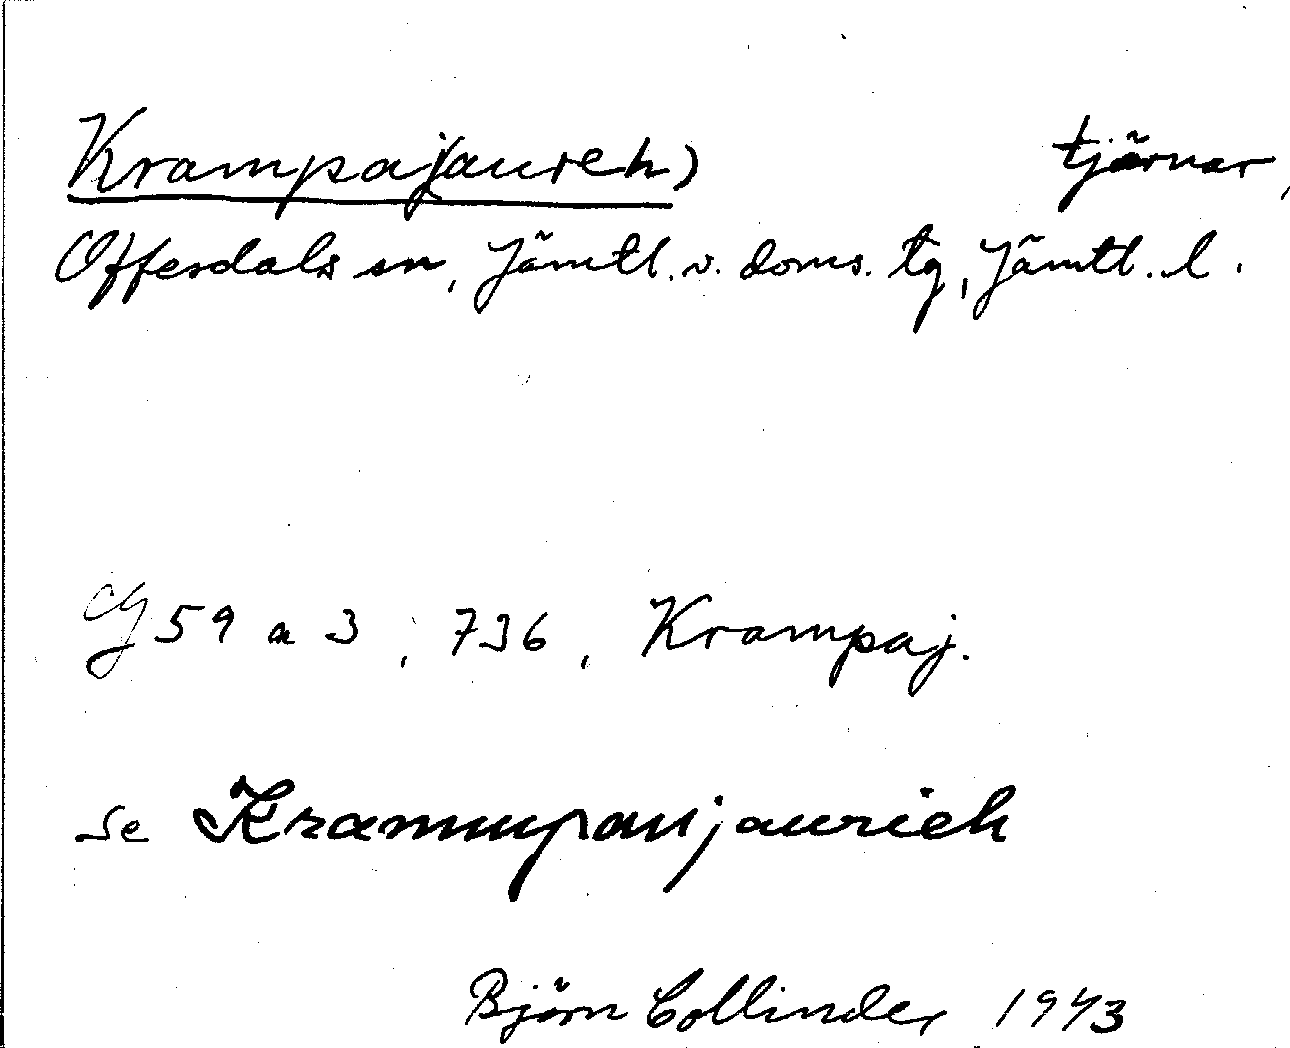 Krampaj(aureh) tjärnar,
Offerdals sn, Jämtl. v. doms. tg, Jämtl. l.
59 a 3, 736, Krampaj.
se Krammpanjaurieh
Björn Collinder 1943